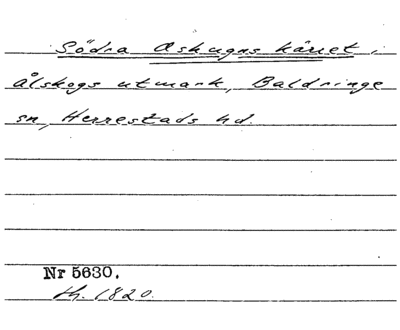 Södra Askugns kärret,
Ålskogs utmark, Baldringe
sn, Herrestads hd.
Nr 5630.
1820.